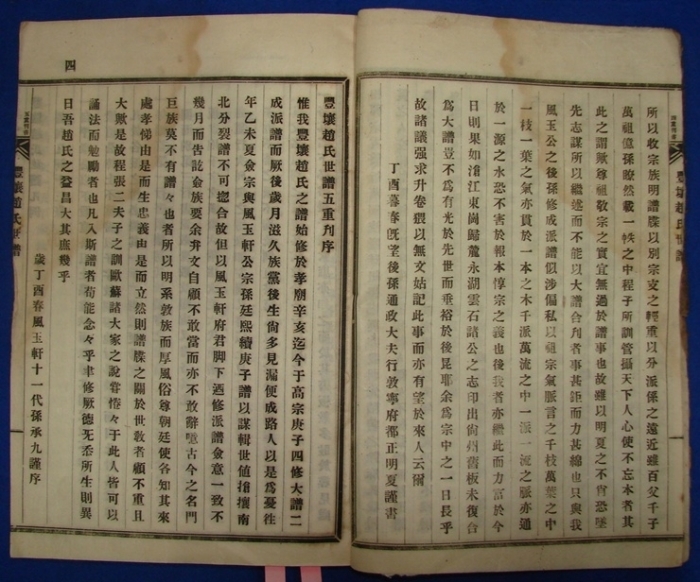 所以收宗族明譜牒以別宗支之輕重以分派係之遠近雖百父千子
萬祖億孫瞭然載一帙之中程子所訓管攝天下人心使不忘本者其
此之謂歟尊祖敬宗之實宜無過於譜事也故雖以明夏之不肖恐墜
先志謀所以繼述而不能以大譜合刋者事甚鉅而力甚綿也只與我
風玉公之後孫修成派譜似涉偏私以祖宗氣脈言之千枝萬葉之中
一枝一葉之氣亦貫於一本之木千派萬流之中一派一流之脈亦通
於一源之水恐不害於報本惇宗之義也後我者亦繼此而力富於今
日則果如滄江東崗歸麓永湖雲石諸公之志印出尙州舊板未復合
爲大譜豈不爲有光於先世而垂裕於後昆耶余爲宗中之一日長乎
故諸議强求升卷猥以無文姑記此事而亦有望於來人云爾
丁酉暮春旣望後孫通政大夫行敦寧府都正明夏謹書
豐壤趙氏世譜
豐壤趙氏世譜五重刋序
惟我豐壤趙氏之譜始修於孝廟辛亥迄今于高宗庚子四修大譜二
成派譜而厥後歲月滋久族黨後生尙多見漏便成路人以是爲憂往
年乙未夏僉宗與風玉軒公宗孫廷熙續庚子譜以謀輯世値搶攘南
北分裂譜不可悤合故但以風玉軒府君脚下迺修派譜僉意一致不
幾月而告訖僉族要余弁文自顧不敢當而亦不敢辭噫古今之名門
巨族莫不有譜々也者所以明系敦族而厚風俗尊朝廷使各知其來
處孝悌由是而生忠義由是而立然則譜牒之關於世敎者顧不重且
大歟是故程張二夫子之訓歐蘇諸大家之說眷惓々于此人皆可以
誦法而勉勵者也凡入斯譜者苟能念々乎聿修厥德旡忝所生則異
日吾趙氏之益昌大其庶幾乎
歲丁酉春風玉軒十一代孫承九謹序
豐壤趙氏世譜
四